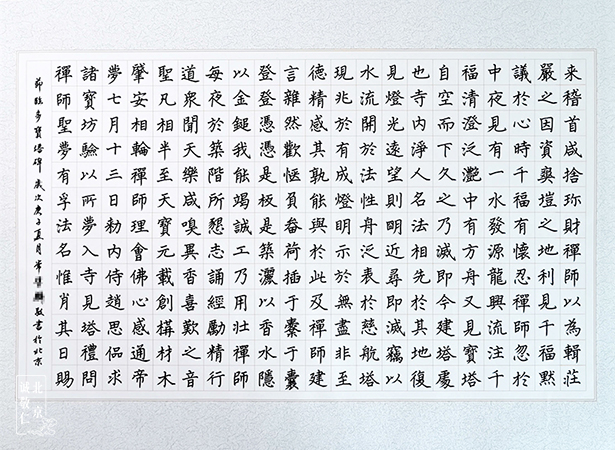 来稽首咸捨珎財禪師以為輯莊
嚴之因資爽塏之地利見千福默
議於心時千福有懷忍禪師忽於
中夜見有一水發源龍興流注千
福清澄泛灧中有方舟又見寶塔
自空而下久之乃滅即今建塔處
也寺内淨人名法相先於其地復
見燈光遠望則明近尋即滅竊以
水流開於法性舟泛表於慈航塔
現兆於有成燈明示於無盡非至
德精感其孰能與於此及禪師建
言雜然歡愜負畚荷插于橐于囊
登登憑憑是板是築灑以香水隱
以金鎚我能竭誠工乃用壯禪師
每夜於築階所懇志誦經勵精行
道衆聞天樂咸嗅異香喜歎之音
聖凡相半至天寶元載創構材木
肇安相輪禪師理會佛心感通帝
夢七月十三日勑内侍趙思侶求
諸寶坊驗以所夢入寺見塔禮問
禪師聖夢有孚法名惟肖其日賜
節臨多寶塔碑 歲次庚子夏月常 敬書於北京
北京
誠敬仁